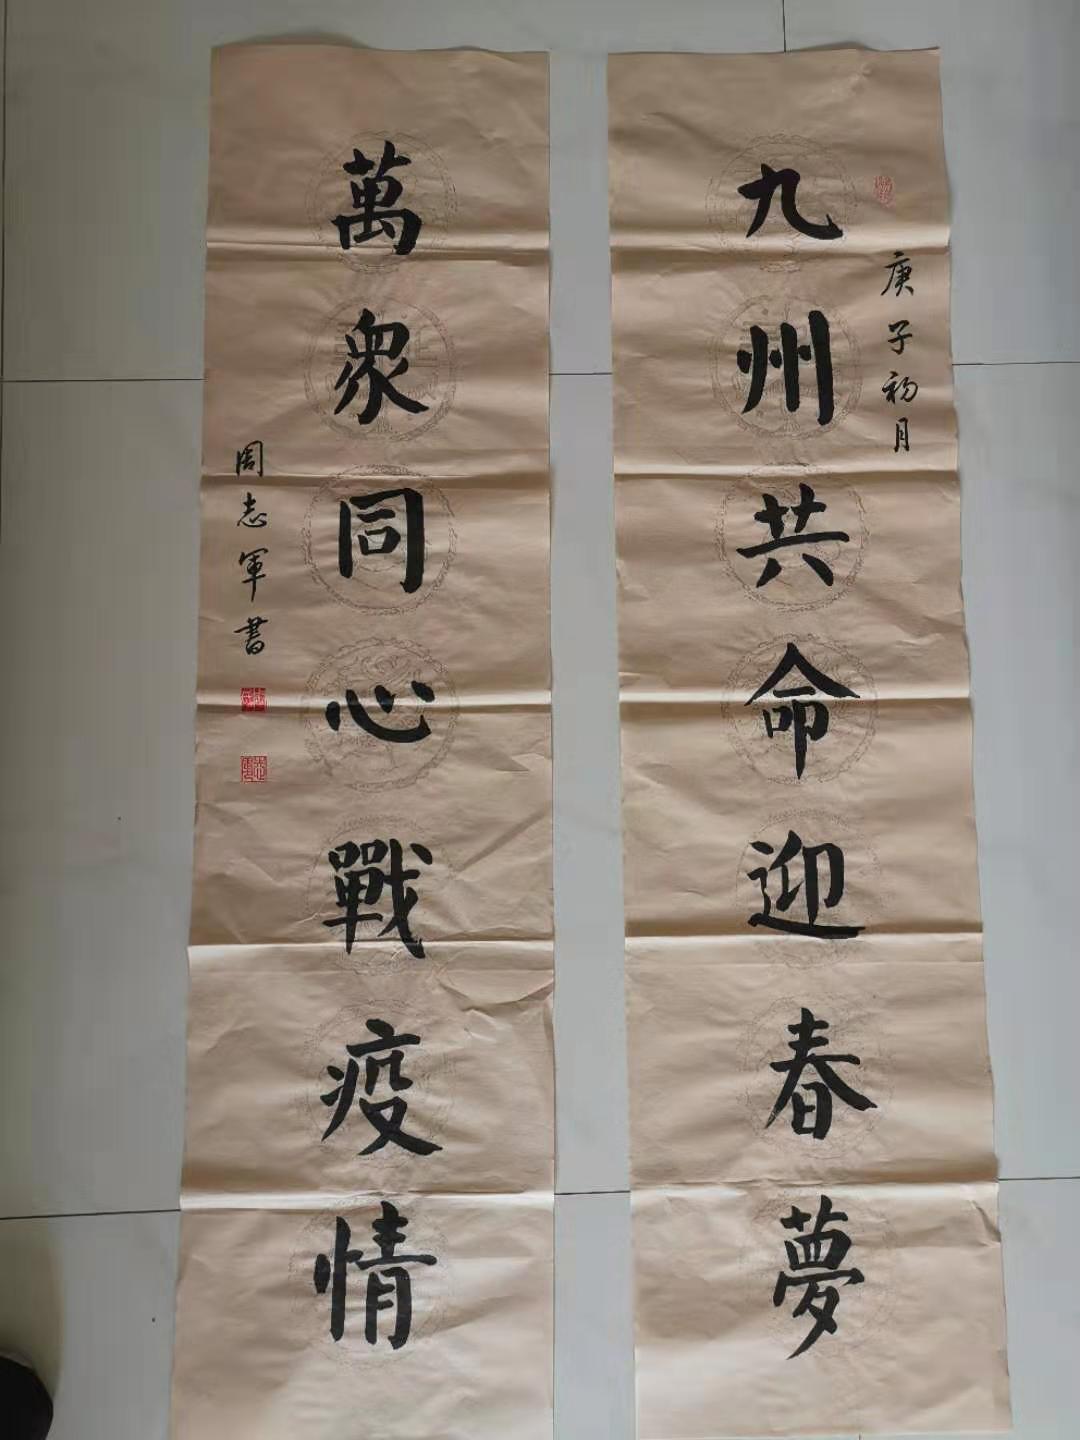 庚子初月
九州共命迎春夢
萬衆同心戰疫情
周志軍書